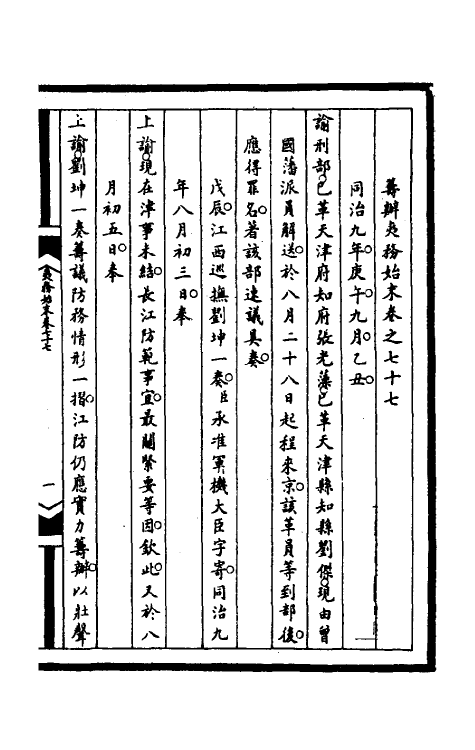 籌辦夷務始末卷之七十七
同治九年庚午九月乙丑
諭刑部。已革天津府知府張光藻。已革天津縣知縣劉傑。現由曾
國藩派員解送。於八月二十八日起程來京。該革員等到部後。
應得罪名。著該部速議具奏。
戊辰。江西巡撫劉坤一奏。臣承准軍機大臣字寄。同治九
年八月初三日。奉
上諭。現在津事未結。長江防範事宜。最關緊要等因。欽此。又於八
月初五日。奉
上諭。劉坤一奏籌議防務情形一摺。江防仍應實力籌辦。以壯聲
夷務始末卷七十七
一